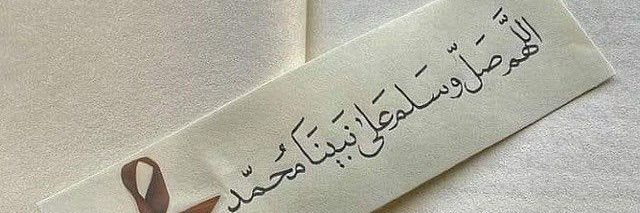 اللّهم صَلّ وسَلم عَلىٰ نَبينَا مُحمّد